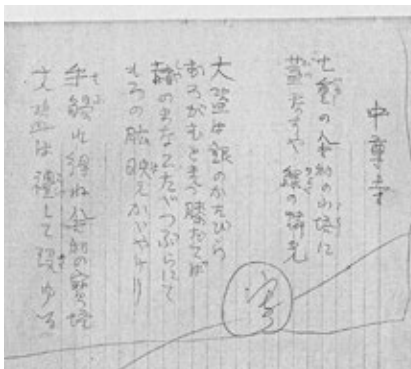 中尊寺
七重の舎利の小塔に
蓋なすや緑の燐光
大盗は銀のかたびら
おろがむとまづ膝だてば
赭のまなこたゞつぶらにて
もろの肱映えかゞやけり
手觸れ得ね舎利の寶塔
大盗は禮して没ゆる
寫